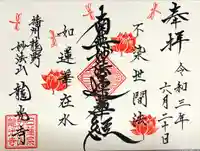 奉拝
令和三年
六月二十日
不染世間法
南無妙法蓮華経
如蓮華在水
播州龍野
龍光寺